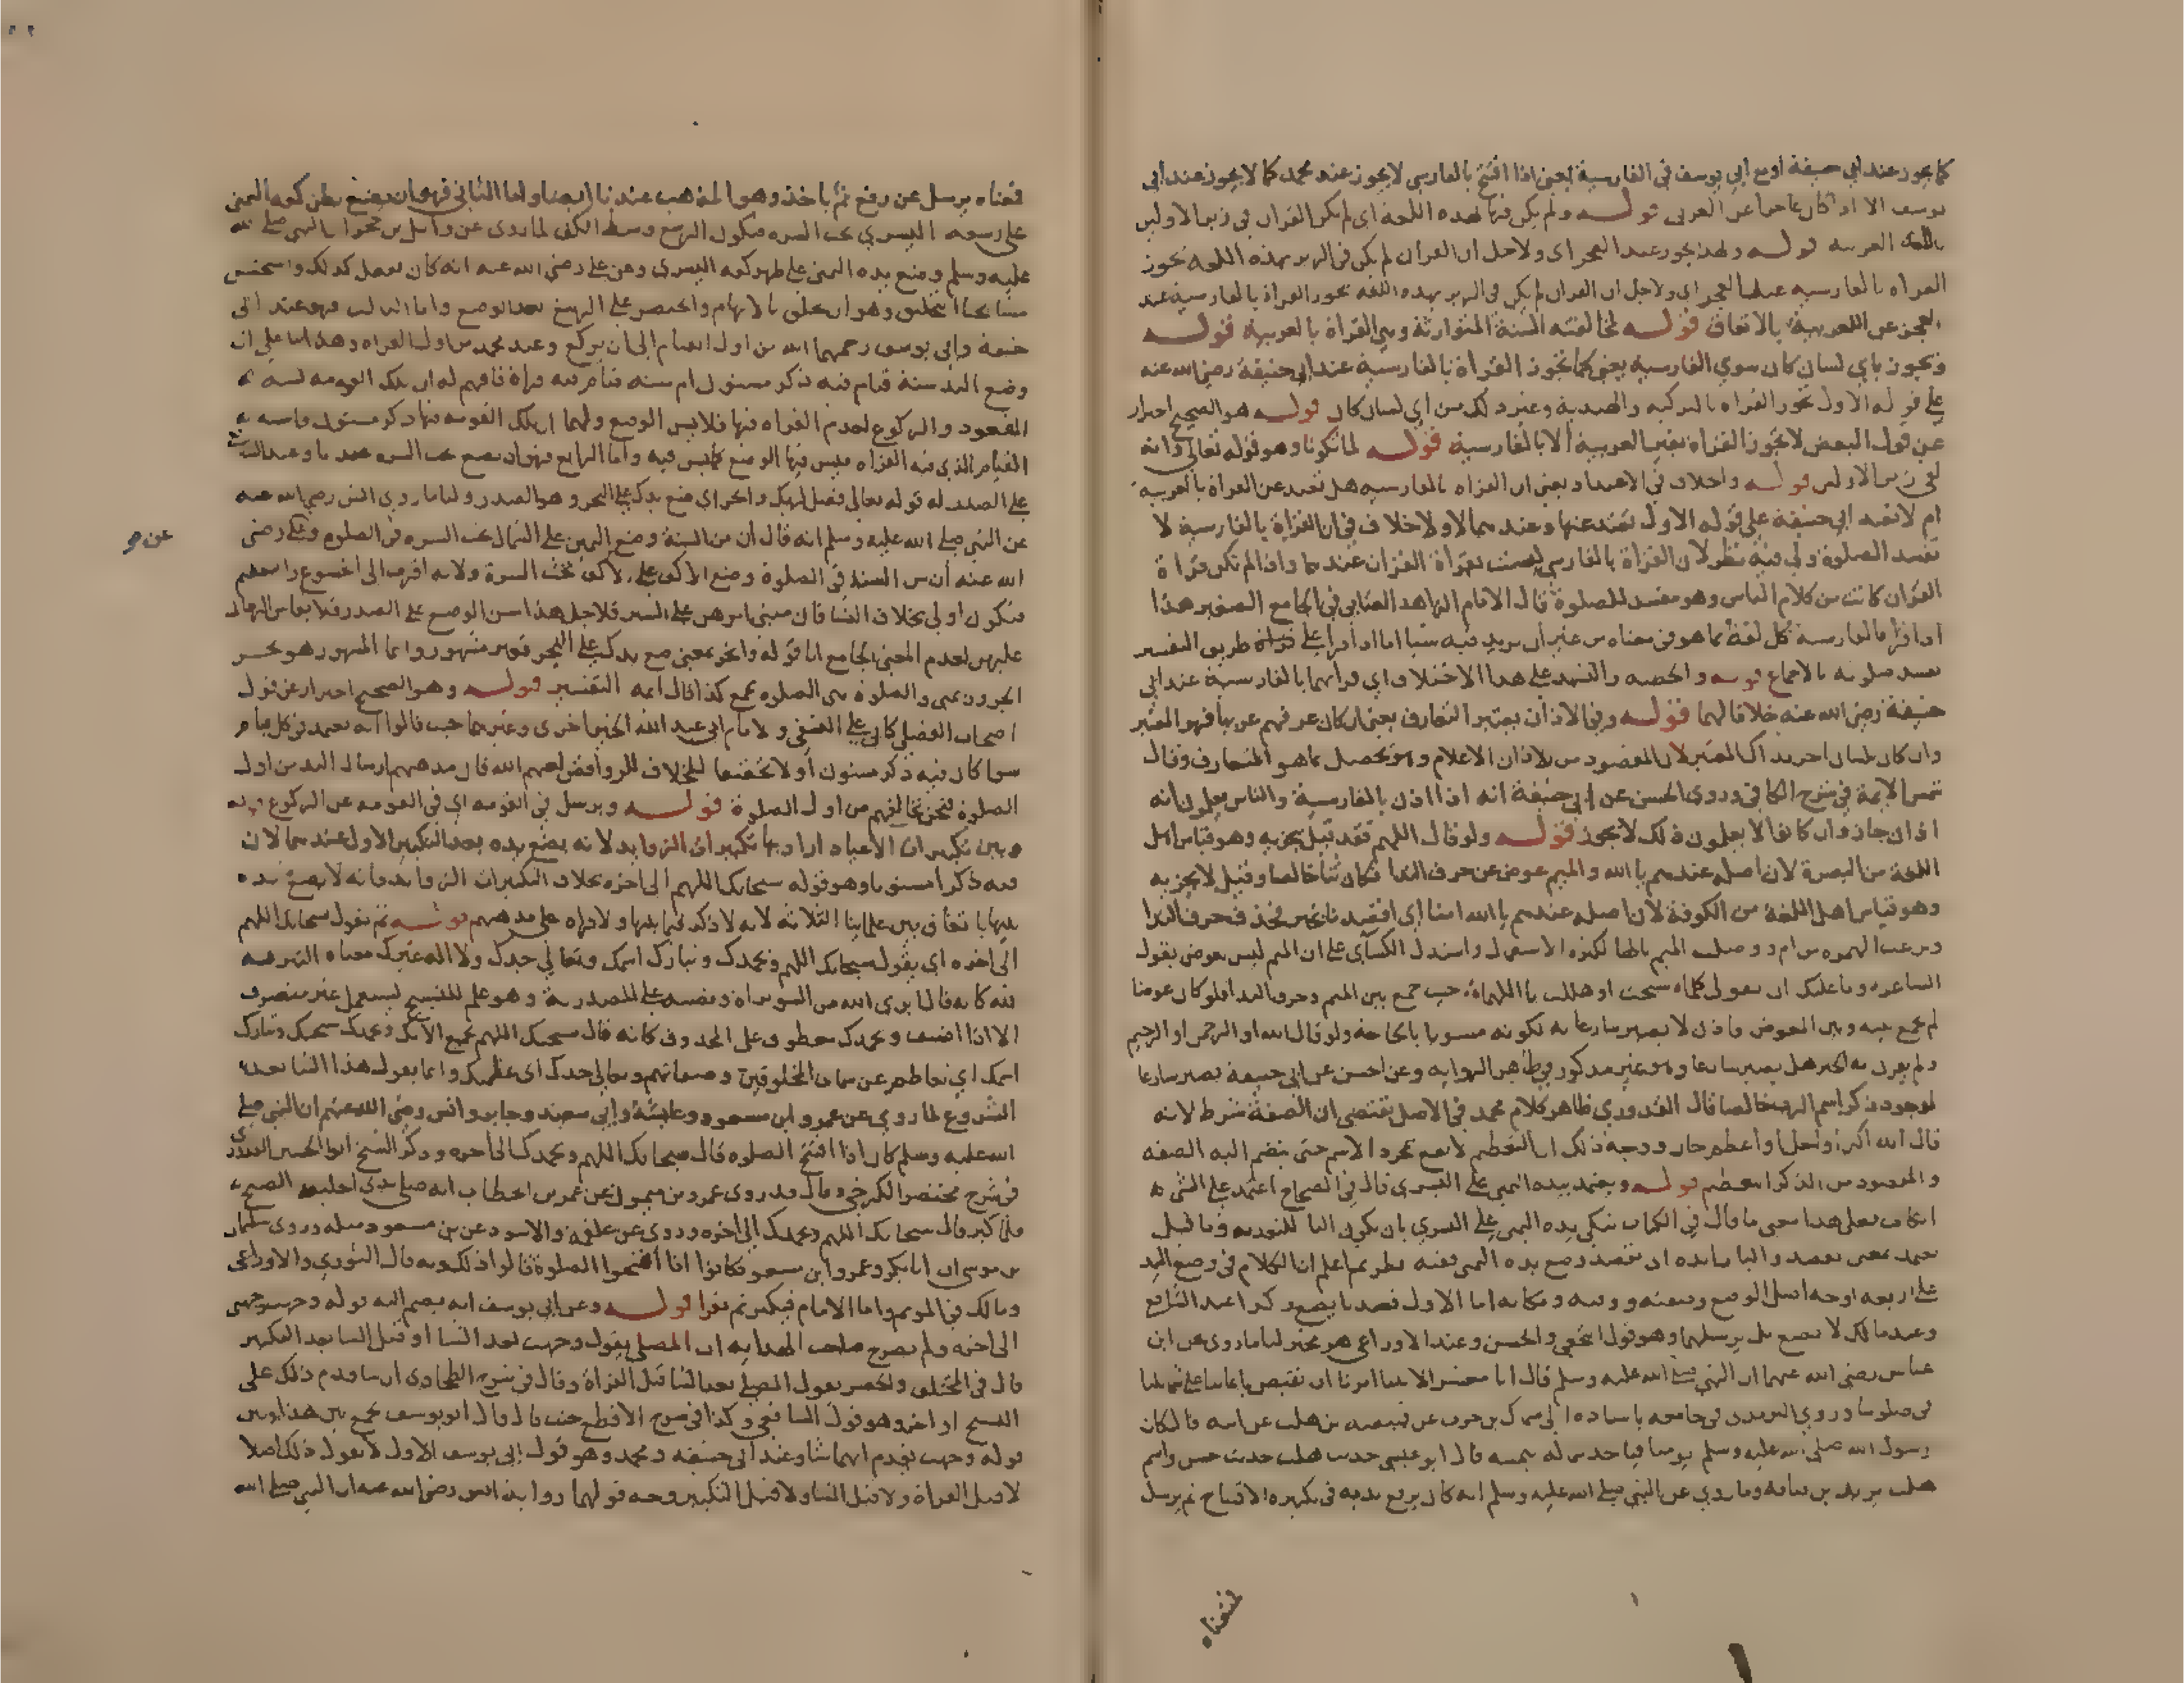 كما يجوز عند ابي حنيفة او مع ابي يوسف في الفارسية يعني اذا افتتح بالفارسي لا يجوز عند محمد كما لا يجوز عند ابي
يوسف الا اذا كان عاجزا عن العربي قوله ولم يكن فيها بهذه اللغة اي لم يكن القران في زبر الاولين
باللغة العربية قوله ولهذا يجوز عند العجز اي ولاجل ان القران لم يكن في الزبر بهذه اللغة تجوز
القراة بالفارسية عند العجز اي ولاجل ان القران لم يكن في الزبر بهذه اللغة تجوز القراة بالفارسية عند
العجز عن العربية بالاتفاق قوله لمخالفته السنة المتوارثة وهي القراة بالعربية قوله
ويجوز باي لسان كان سوي الفارسية يعني كما تجوز القراة بالفارسية عند ابي حنيفة رضي الله عنه
علي قوله الاول تجوز القراة بالتركية والهندية وغير ذلك من اي لسان كان قوله هو الصحيح احتراز
عن قول البعض لا تجوز القراة بغير العربية الا بالفارسية قوله لما تلونا وهو قوله تعالي وانه
لفي زبر الاولين قوله والخلاف في الاعتداد يعني ان القراة بالفارسية هل تعتد عن القراة بالعربية
ام لا فعند ابي حنيفة علي قوله الاول تعتد عنها وعندهما لا ولا خلاف في ان القراة بالفارسية لا
تفسد الصلوة ولي فيه نظر لان القراة بالفارسي ليست بقراة القران عندهما واذا لم تكن قراة
القران كانت من كلام الناس وهو مفسد للصلوة قال الامام الزاهد العتابي في الجامع الصغير هذا
اذا قرا بالفارسية كل لفظ بما هو في معناه من غير ان يزيد فيه شيا اما اذا قرا علي طريق التفسير
تفسد صلوته بالاجماع قوله والخطبة والتشهد علي هذا الاختلاف اي قراتهما بالفارسية عند ابي
حنيفة رضي الله عنه خلافا لهما قوله وفي الاذان يعتبر التعارف يعني ان كان عرفهم عربيا فهو المعتبر
وان كان بلسان اخر فذاك المعتبر لان المقصود من الاذان الاعلام وهو يحصل بما هو المتعارف وقال
شمس الايمة في شرح الكافي وروي الحسن عن ابي حنيفة انه اذا اذن بالفارسية والناس يعلمون انه
اذان جاز وان كانوا لا يعلمون ذلك لا يجوز قوله ولو قال اللهم فقد قيل يجزيه وهو قياس اهل
اللغة من البصرة لان اصله عندهم يا الله والميم عوض عن حرف الندا فكان ثنا خالصا وقيل لا يجزيه
وهو قياس اهل اللغة من الكوفة لان اصله عندهم يا الله امنا اي اقصد نا بخير فحذف حرف الندا
الشاعر وما عليك ان تقولي كلما سبحت او هللت يا اللهما حيث جمع بين الميم وحرف الندا فلو كان عوضا
لم يجمع بينه وبين المعوض فاذن لا يصير شارعا به لكونه مشوبا بالحاجة ولو قال الله او الرحمن او الرحيم
ولم يزد به الخبر هل يصير شارعا وهو غير مذكور في ظاهر الرواية وعن الحسن عن ابي حنيفة يصير شارعا
لوجود ذكر اسم الرب خالصا قال القدوري ظاهر كلام محمد في الاصل يقتضي ان الصفة شرط لانه
قال الله اكبر او اجل او اعظم جاز ووجه ذلك ان التعظيم لا يقع بمجرد الاسم حتي ينضم اليه الصفة
والمقصود من الذكر التعظيم قوله ويعتمد بيده اليمني علي اليسري قال في الصحاح اعتمد علي الشي
اتكا فعلي هذا معني ما قال في الكتاب يتكي بيده اليمني علي اليسري بان يكون البا للتعدية وما قيل
يعتمد بمعني يقصد والبا زايدة اي يقصد وضع يده اليمني ففيه نظر ثم اعلم ان الكلام في وضع اليد
علي اربعة اوجه اصل الوضع وصفته ووقته ومكانه اما الاول فعندنا يضع وكذا عند الشافعي
وعند مالك لا يضع بل يرسلهما وهو قول النخعي والحسن وعند الاوزاعي هو مخير لنا ما روي عن ابن
عباس رضي الله عنهما ان النبي صلي الله عليه وسلم قال انا معشر الانبيا امرنا ان نقبض بايماننا علي شمايلنا
في صلوتنا وروي الترمذي في جامعه باسناده الي سماك بن حرب عن قبيصة بن هلب عن ابيه قال كان
رسول الله صلي الله عليه وسلم يومنا فياخذ شماله بيمينه قال ابو عيسي حديث هلب حديث حسن واسم
هلب يزيد بن قنافة وما روي عن النبي صلي الله عليه وسلم انه كان يرفع يديه في تكبيرة الافتتاح ثم يرسل
فمعناه
فمعناه يرسل عن رفع ثم ياخذ وهو المذهب عندنا ايضا واما الثاني فهو ان يضع بطن كفه اليمني
علي رسغه اليسري تحت السرة فيكون الرسغ وسط الكف لما روي عن وايل بن حجر ان النبي صلي الله
عليه وسلم وضع يده اليمني علي ظهر كفه اليسري وعن علي رضي الله عنه انه كان يفعل كذلك واستحسن
مشايخنا التحليق وهو ان يحلق بالابهام والخنصر علي الرسغ بعد الوضع واما الثالث فهو عند ابي
حنيفة وابي يوسف رحمهما الله من اول القيام الي ان يركع وعند محمد من اول القراة وهذا بنا علي ان
وضع اليد سنة قيام فيه ذكر مسنون ام سنة قيام فيه قراة فافهم
القعود والركوع لعدم القراة فيها فلا يسن الوضع
القيام الذي فيه القراة فيسن فيها الوضع كما يسن فيه واما الرابع فهو ان يضع تحت السرة عندنا وعند الشافعي
علي الصدر له قوله تعالي فصل لربك وانحر اي ضع يدك علي النحر وهو الصدر ولنا ما روي انس رضي الله عنه
عن النبي صلي الله عليه وسلم انه قال ان من السنة وضع اليمين علي الشمال تحت السرة في الصلوة وعن علي رضي
الله عنه ان من السنة في الصلوة وضع الاكف علي الاكف تحت السرة ولانه اقرب الي الخشوع والتعظيم
فيكون اولي بخلاف النسا فان مبني امرهن علي الستر فلاجل هذا سن الوضع علي الصدر فلا يقاس الرجال
عليهن لعدم المعني الجامع اما قوله وانحر بمعني ضع يدك علي النحر فغير مشهور وانما المشهور هو نحر
الجزور بمني والصلوة هي الصلوة بجمع كذا قال ايمة التفسير قوله وهو الصحيح احتراز عن قول
اصحاب الفضلي كابي علي النسفي والامام ابي عبد الله الخيزاخزي وغيرهما حيث قالوا انه يعتمد في كل قيام
سوا كان فيه ذكر مسنون او لا تحقيقا للخلاف للروافض لعنهم الله فان مذهبهم ارسال اليد من اول
الصلوة فنحن نخالفهم من اول الصلوة قوله ويرسل في القومة اي في القومة عن الركوع قوله
وبين تكبيرات الاعياد اراد بها تكبيرات الزوايد لانه يضع يده بعد التكبير الاول عندهما لان
فيه ذكرا مسنونا وهو قوله سبحانك اللهم الي اخره بخلاف التكبيرات الزوايد فانه لا يضع يده
فيها باتفاق بين علماينا الثلاثة لانه لا ذكر فيما بينها ولا قراة علي مذهبهم قوله ثم يقول سبحانك اللهم
الي اخره اي يقول سبحانك اللهم وبحمدك وتبارك اسمك وتعالي جدك ولا اله غيرك معناه التنزيه
لله كانه قال ابري الله من السو براة ونصبه علي المصدرية وهو علم للتسبيح ليستعمل غير منصرف
الا اذا اضيف وبحمدك معطوف علي المحذوف كانه قال سبحتك اللهم بجميع الايك وبحمدك سبحتك وتبارك
اسمك اي تعاظم عن سمات المخلوقين وصفاتهم وتعالي جدك اي عظمتك وانما يقول هذا الثنا بعد
الشروع لما روي عن عمر وابن مسعود وعايشة وابي سعيد وجابر وانس رضي الله عنهم ان النبي صلي
الله عليه وسلم كان اذا افتتح الصلوة قال سبحانك اللهم وبحمدك الي اخره وذكر الشيخ ابو الحسين القدوري
في شرح مختصر الكرخي وقال وقد روي عمرو بن ميمون عن عمر بن الخطاب انه صلي بذي الحليفة الصبح
فلما كبر قال سبحانك اللهم وبحمدك الي اخره وروي عن علقمة والاسود عن بن مسعود مثله وروي سليمان
بن موسي ان ابا بكر وعمر وابن مسعود كانوا اذا افتتحوا الصلوة قالوا ذلك وبه قال الثوري والاوزاعي
ومالك في الموتم واما الامام فيكبر ثم يقرا قوله وعن ابي يوسف انه يضم اليه قوله وجهت وجهي
الي اخره ولم يصرح صاحب الهداية ان المصلي يقول وجهت بعد الثنا او قبل الثنا بعد التكبير
قال في المختلف والحصر يقول المصلي بعد الثنا قبل القراة وقال في شرح الطحاوي ان شا قدم ذلك علي
التسبيح او اخر وهو قول الشافعي وكذا في شرح الاقطع حيث قال وقال ابو يوسف يجمع بين هذا وبين
قوله وجهت يقدم ايهما شا وعند ابي حنيفة ومحمد وهو قول ابي يوسف الاول لا يقول ذلك اصلا
لا قبل القراة ولا قبل الثنا ولا قبل التكبير وجه قولهما رواية انس رضي الله عنه ان النبي صلي الله